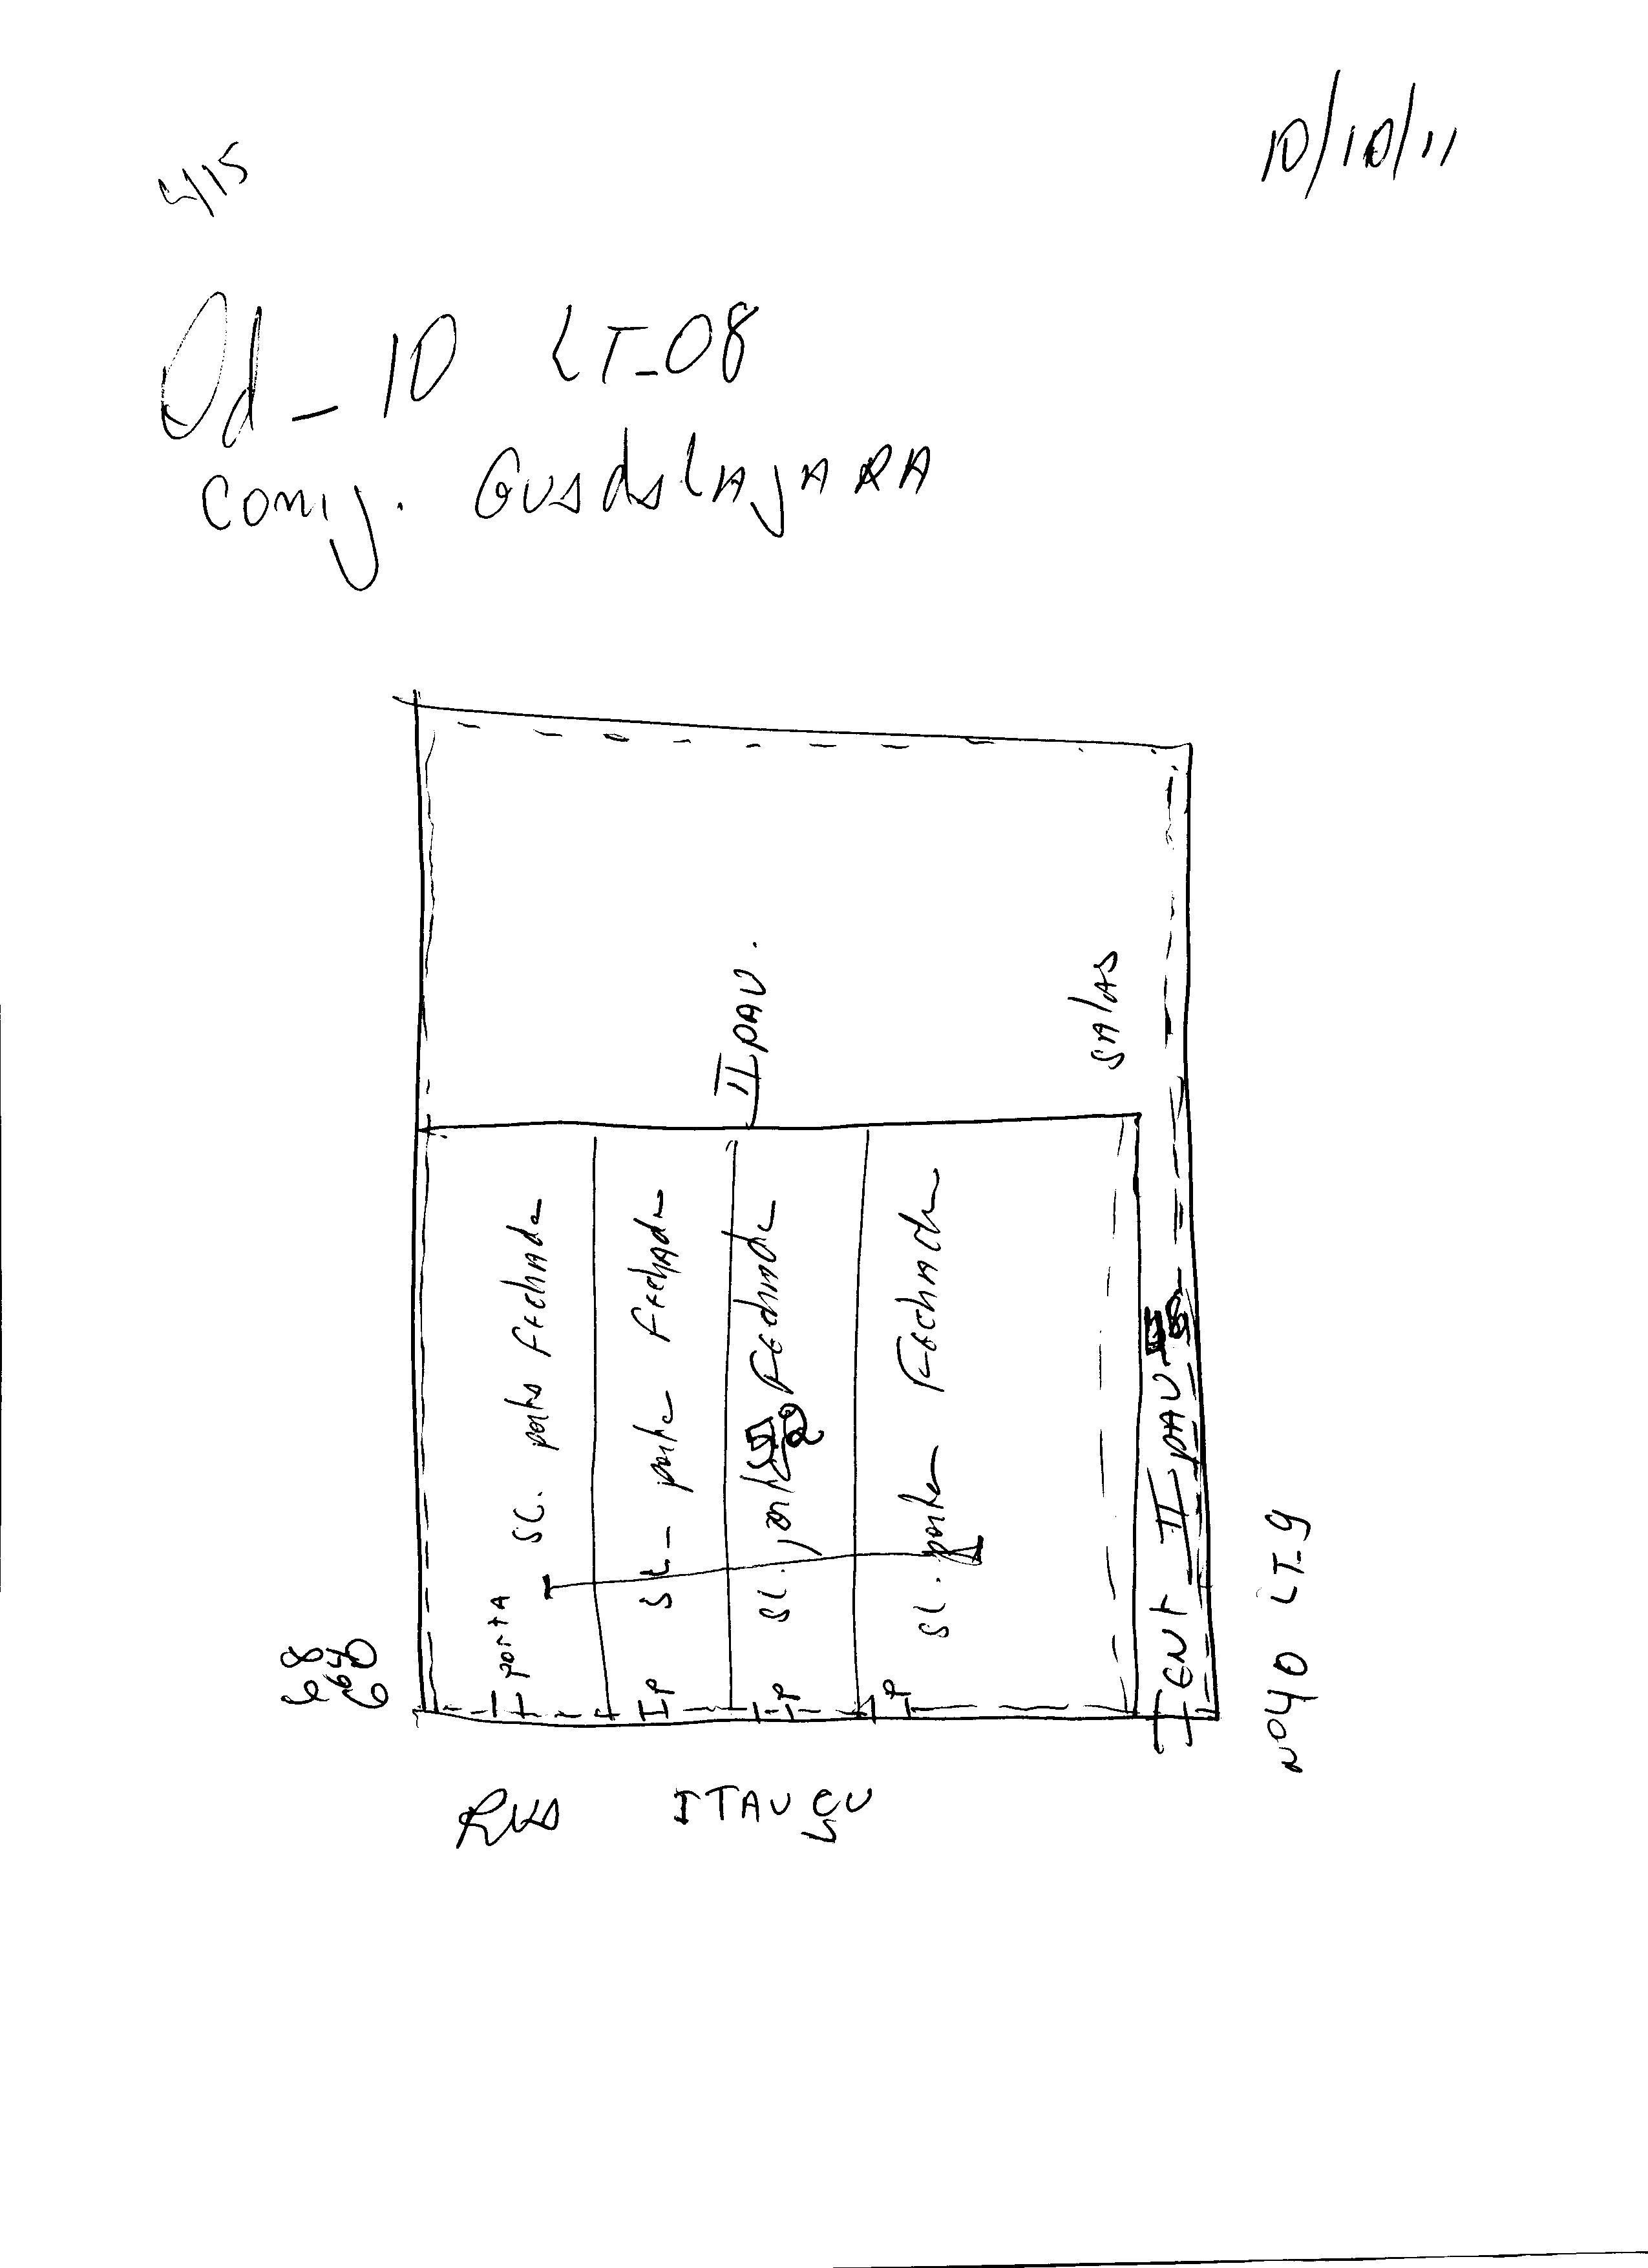 4/15
10/10/11
Qd_10 LT_08
Conj. GuadalAjARA
II PAV.
SALAS
SL. porta FEchada
SL_ porta FEchada
SL. porta FEchada
SL. porta FEchada
porta
P
P
P
ENT II PAV
68
64
60
Nº40 LT_9
RUA ITAUÇU